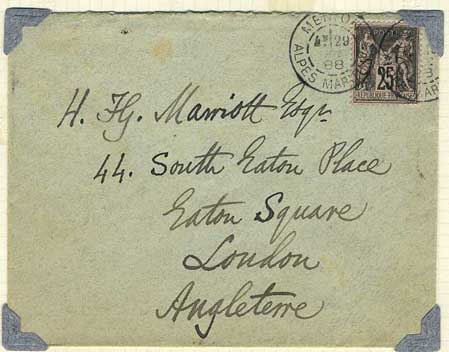 MENTON
4E 29
88
ALPES MAR
25
REPUBLIQUE
H. Fg. Marriott Esqr.
44. South Eaton Place
Eaton Square
London
Angleterre